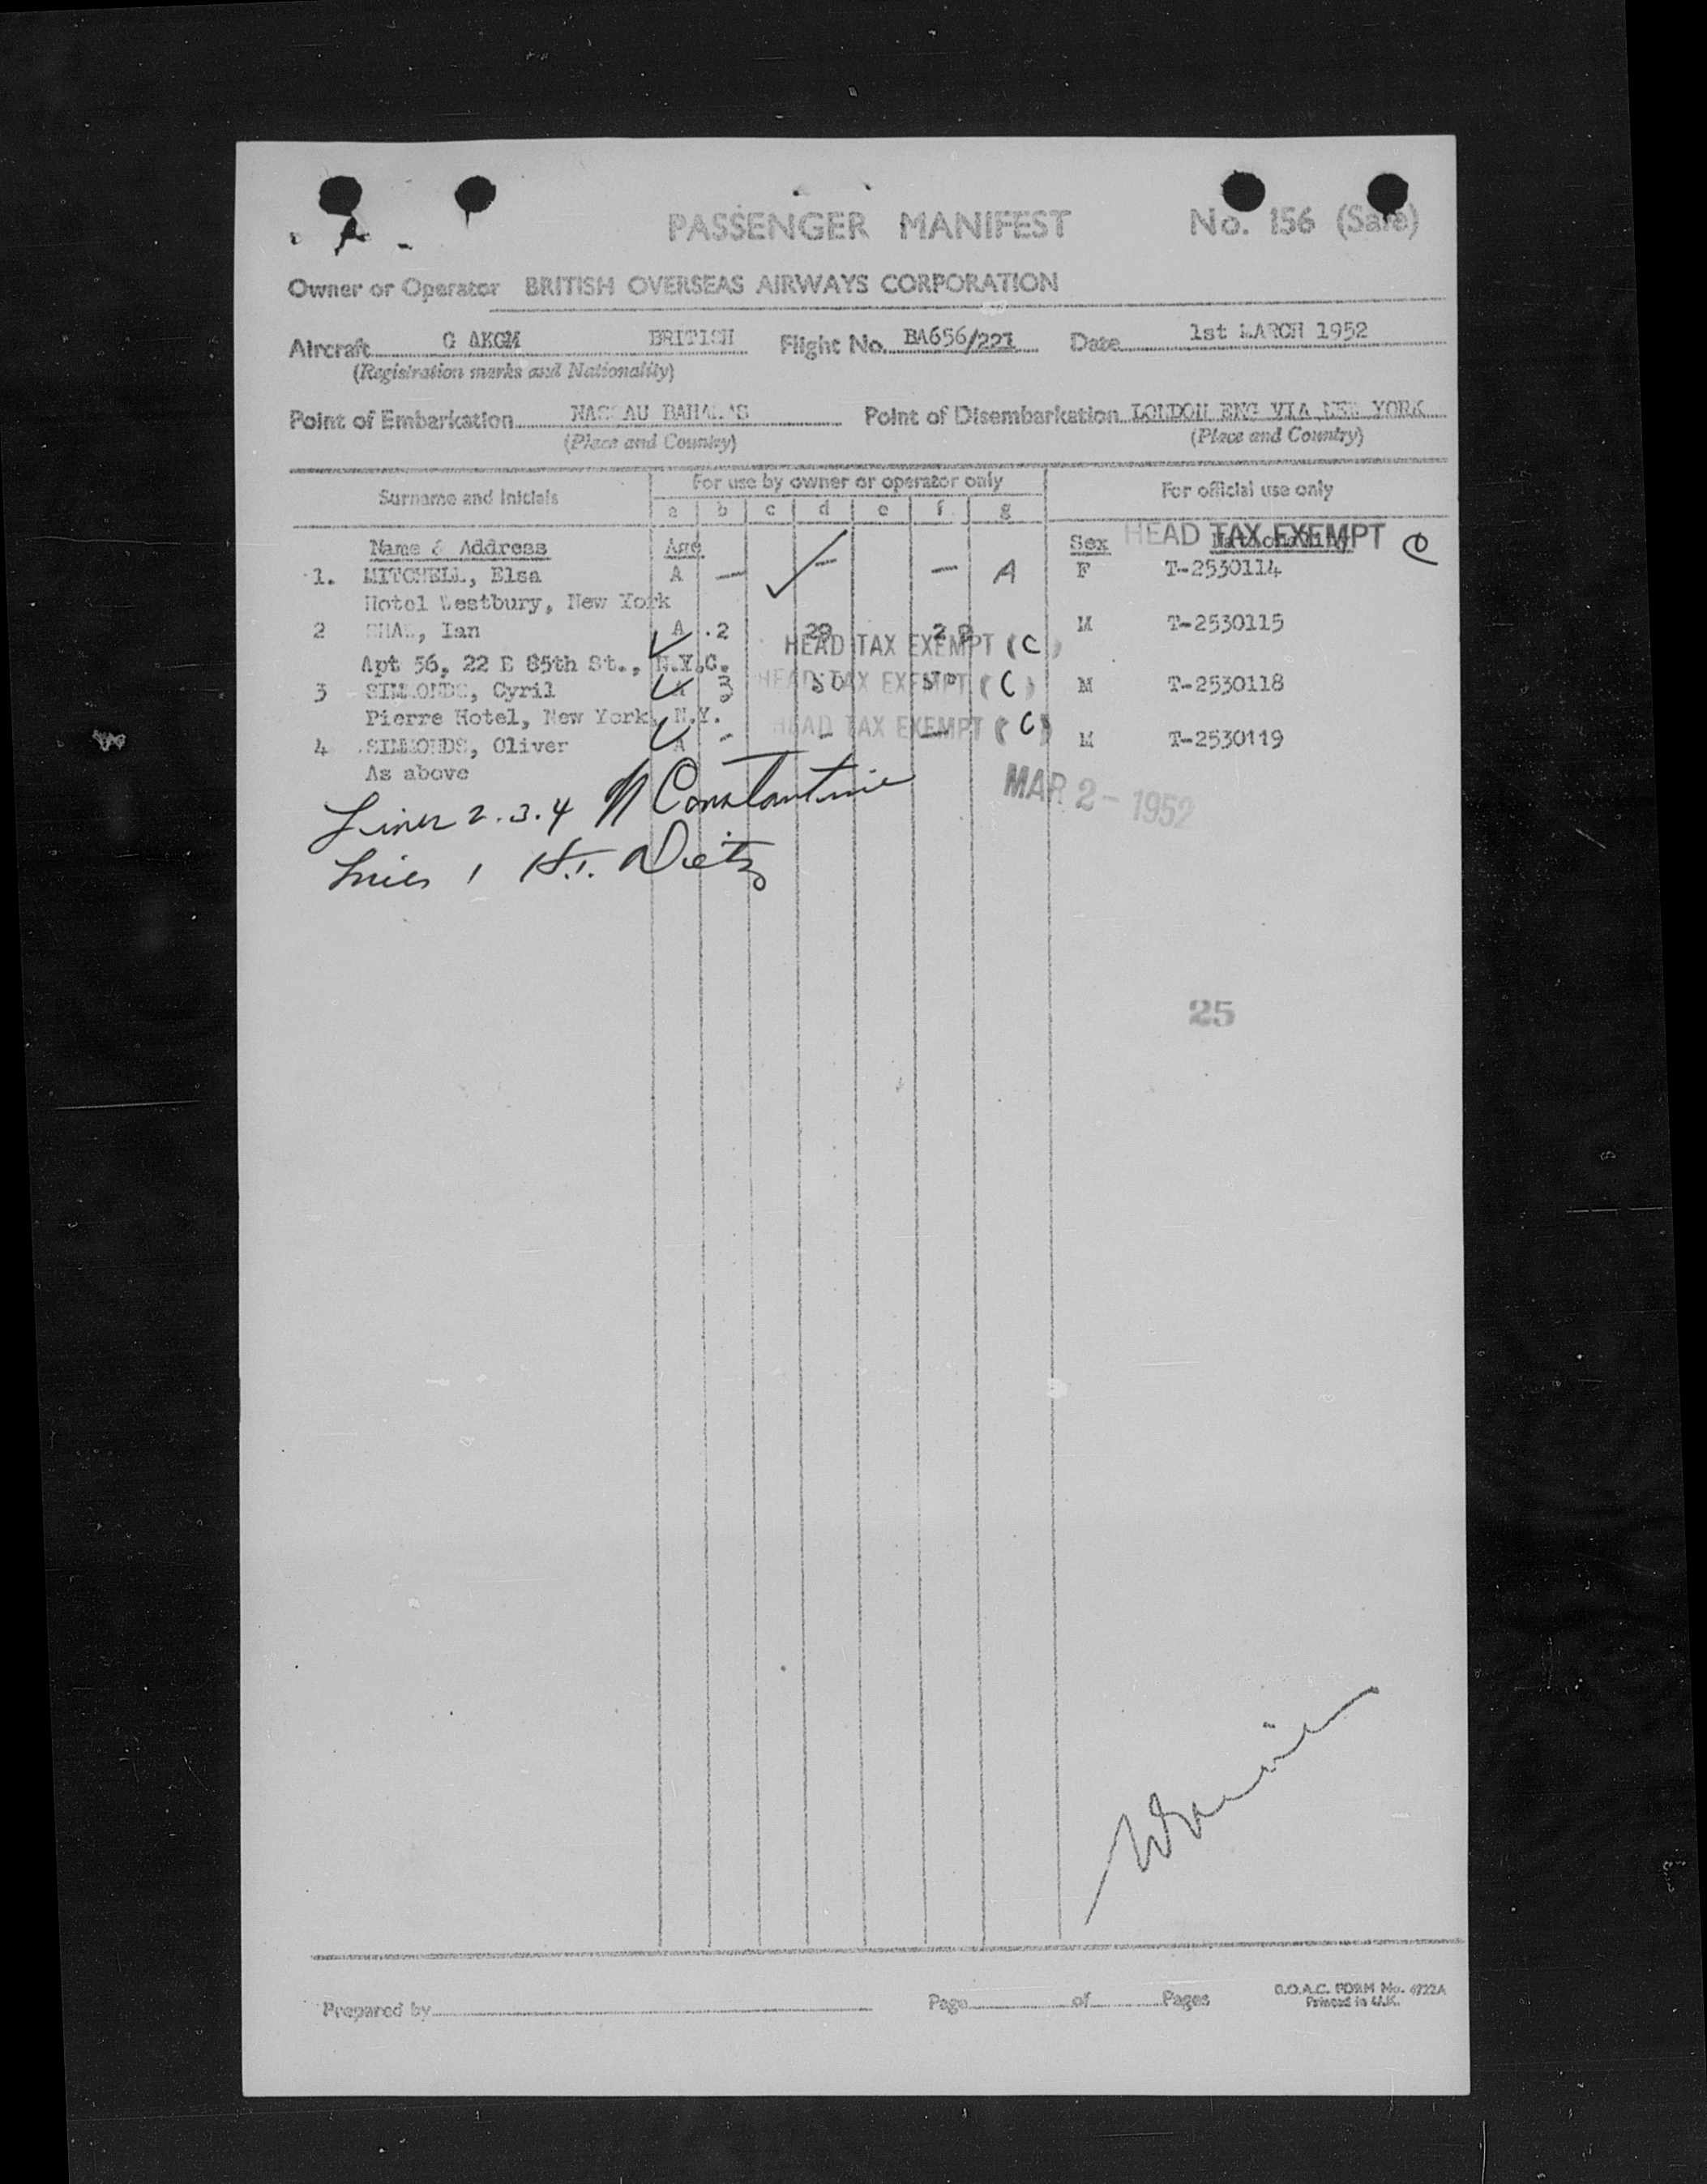 PASSENGER MANIFEST No. 156 (Sale)
Owner or Operator BRITISH OVERSEAS AIRWAYS CORPORATION
Aircraft G AKGM BRITISH Flight No. BA656/221 Date 1st MARCH 1952
(Registration marks and Nationality)
Point of Embarkation NASSAU BAHAMAS Point of Disembarkation LONDON ENG VIA NEW YORK
(Place and Country) (Place and Country)
Surname and Initials For use by owner or operator only For official use only
a b c d e f g
Name & Address Age Sex HEAD TAX EXEMPT
1. MITCHELL, Elsa A — — — A F T-2530114
Hotel Westbury, New York
2 Ian A 2 29 M T-2530115
HEAD TAX EXEMPT (C)
Apt 56, 22 E 85th St., N.Y.C.
3 SIMMONDS, Cyril A 3 50 HEAD TAX EXEMPT (C) M T-2530118
Pierre Hotel, New York, N.Y.
HEAD TAX EXEMPT (C)
4 SIMMONDS, Oliver A - - — M T-2530119
As above
Lines 2.3.4 Constantine
MAR 2 - 1952
Lines 1 Dietz
25
Prepared by Page of Pages
B.O.A.C. FORM No. 4722A
Printed in U.K.